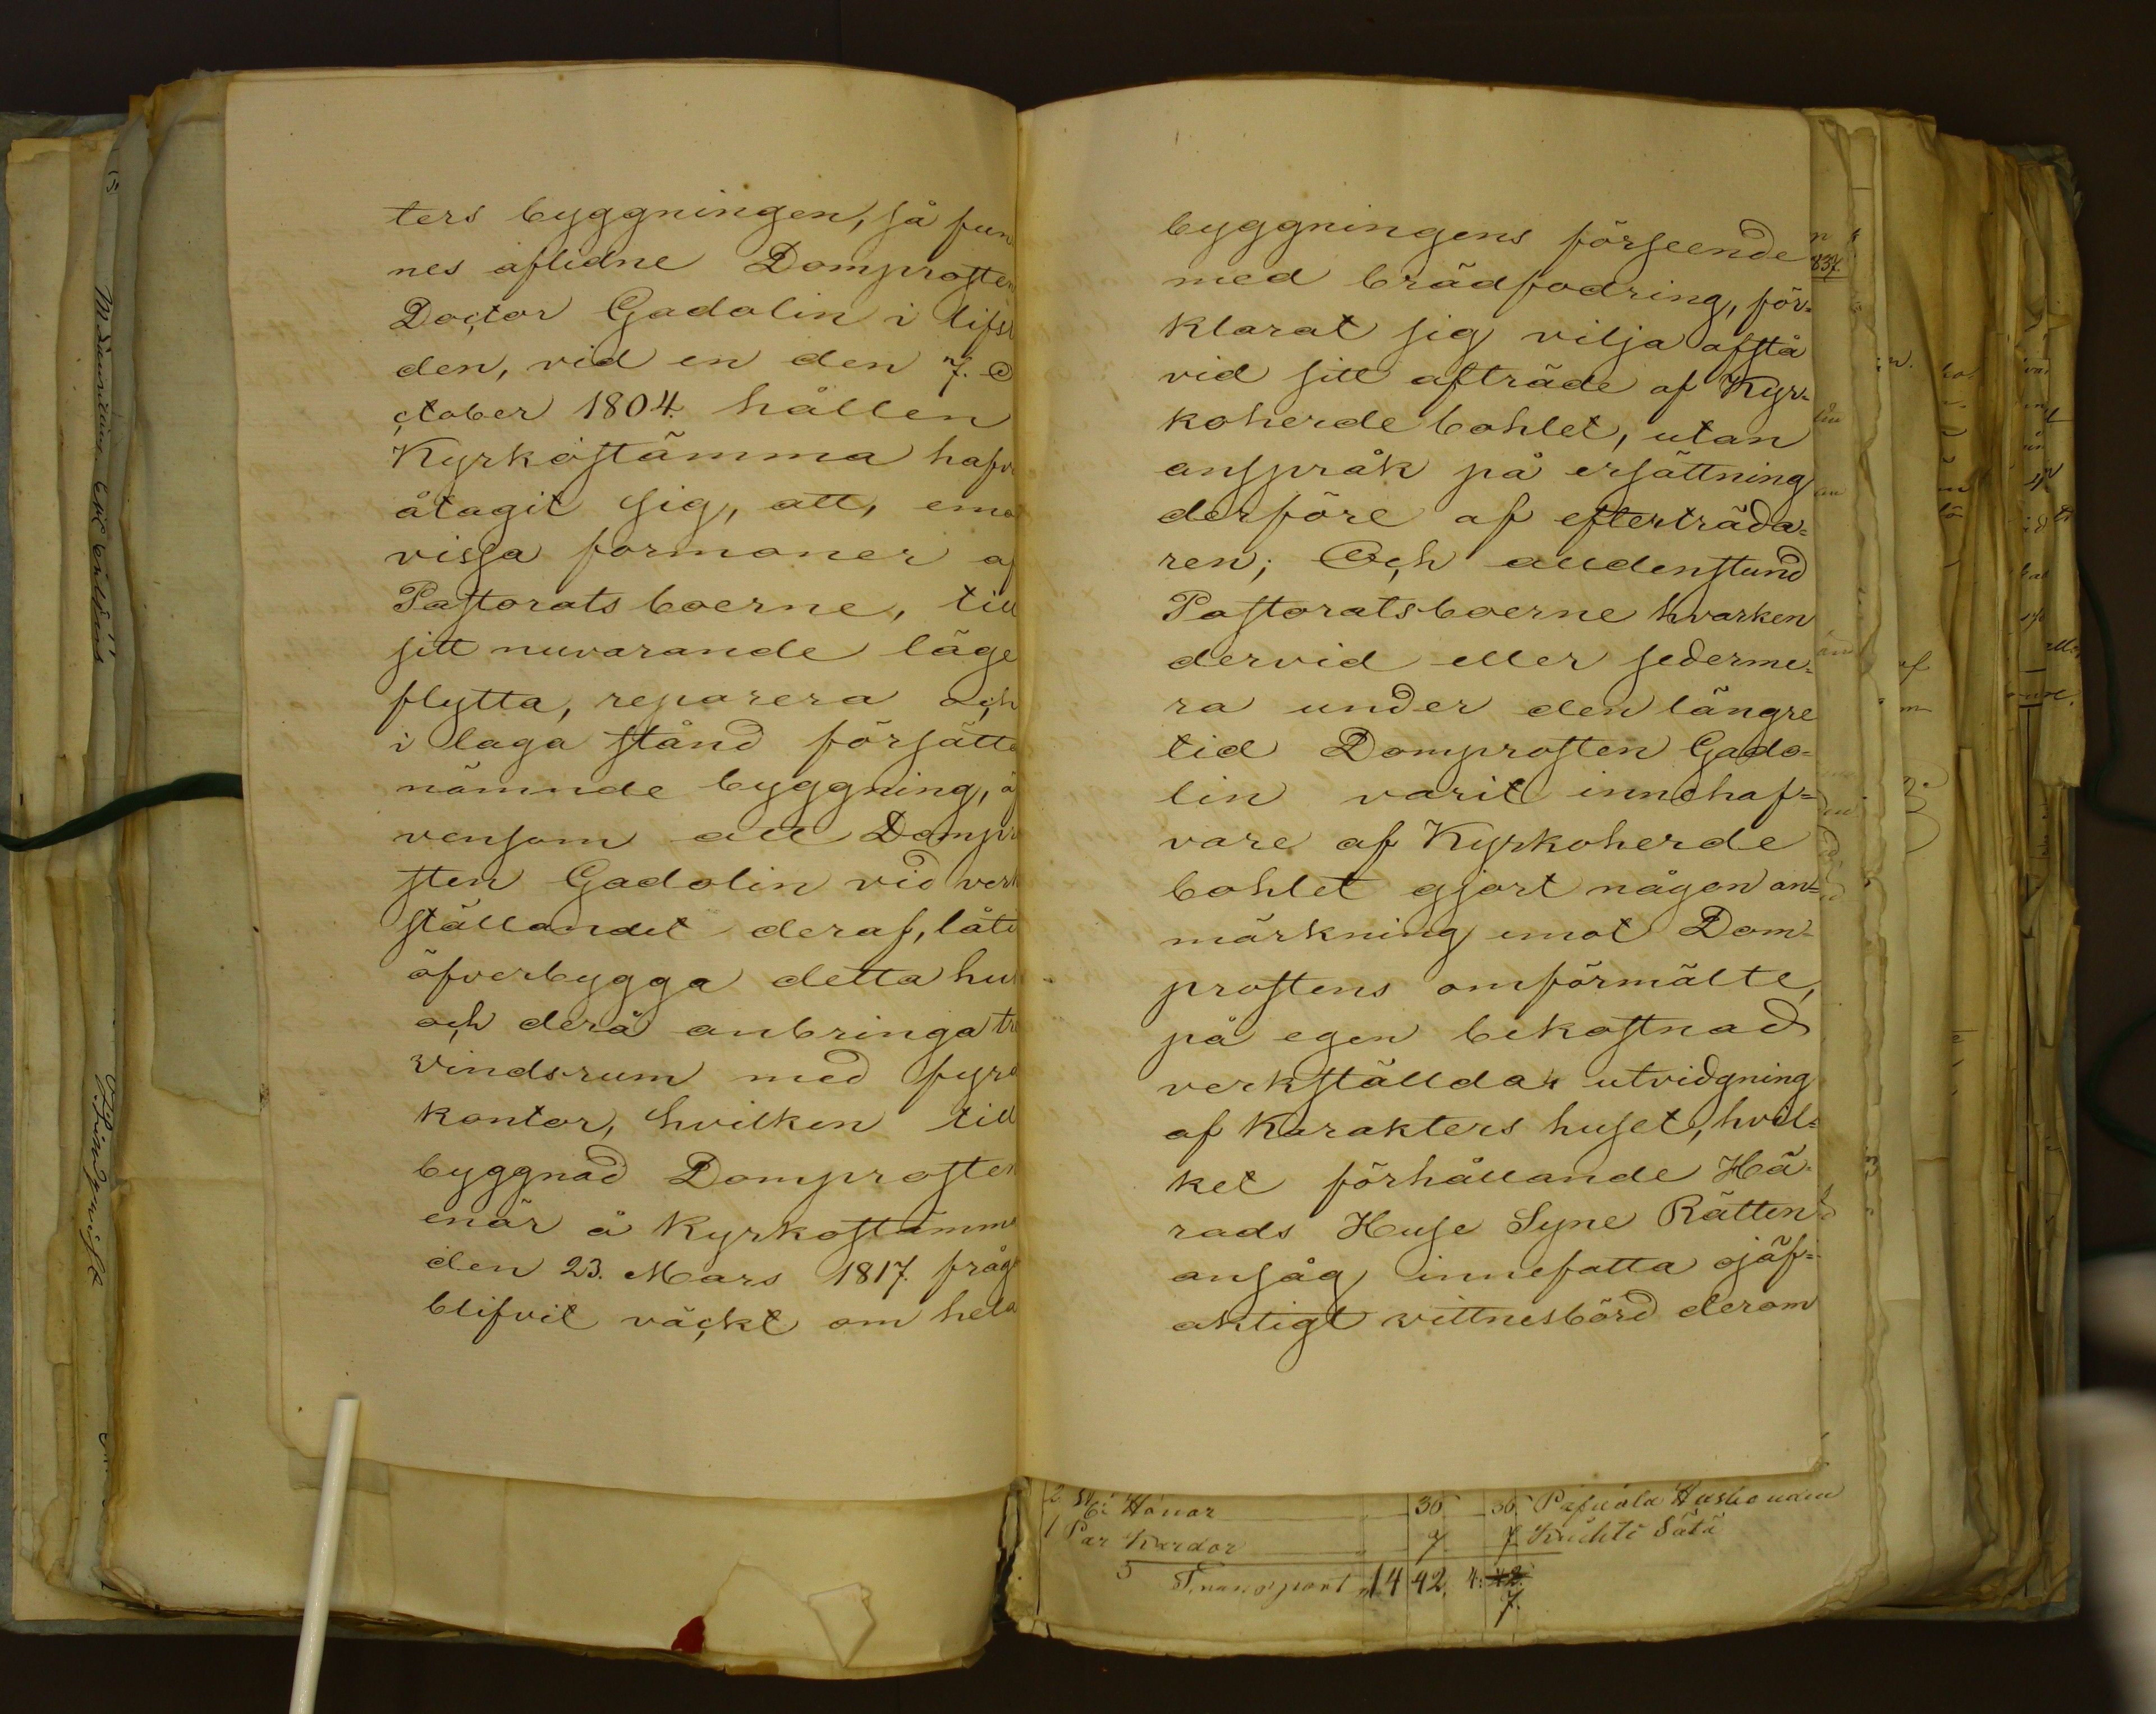 ters byggningen, så fun
nes aflidne Domprosten
Doctor Gadolin i lifst
den, vid en den 7. O
ctober 1804. hållen
Kyrkostämma hafv
åtagit sig, att, emo
vissa formoner af
Pastorats boerne, till
sitt nuvarande läge
flytta, reparera och
i laga stånd försätta
nämnde byggning, ä
vensom att Dompro
sten Gadolin vid verk
ställandet deraf, låti
öfverbygga detta hus
och derå anbringa tr
vindsrum med fyra
kontor, hvilken till
byggnad Domprosten
enär å Kyrkostämma
den 23. Mars 1817. fråga
blifvit väckt om hela
byggningens förseende
med brädfodring, för=
klarat sig vilja afstå
vid sitt afträde af Kyr=
koherde bohlet, utan
anspråk på ersättning
derföre af efterträda=
ren; Och alldenstund
Pastoratsboerne hvarken
dervid eller sederme=
ra under den längre
tid Domprosten Gado=
lin varit innehaf=
vare af Kyrkoherde
bohlet gjort någon an=
märkning emot Dom=
prostens omförmälte,
på egen bekostnad
verkställda utvidgning
af Karakters huset, hvil=
ket förhållande Hä=
rads Huse Syne Rätten
ansåg innefatta ojäf=
aktigt vittnesbörd derom
837.
2 St: Hönor 36 36.
1 Par Kardor 7 7
Transport 14 42. 4: 42.
7.